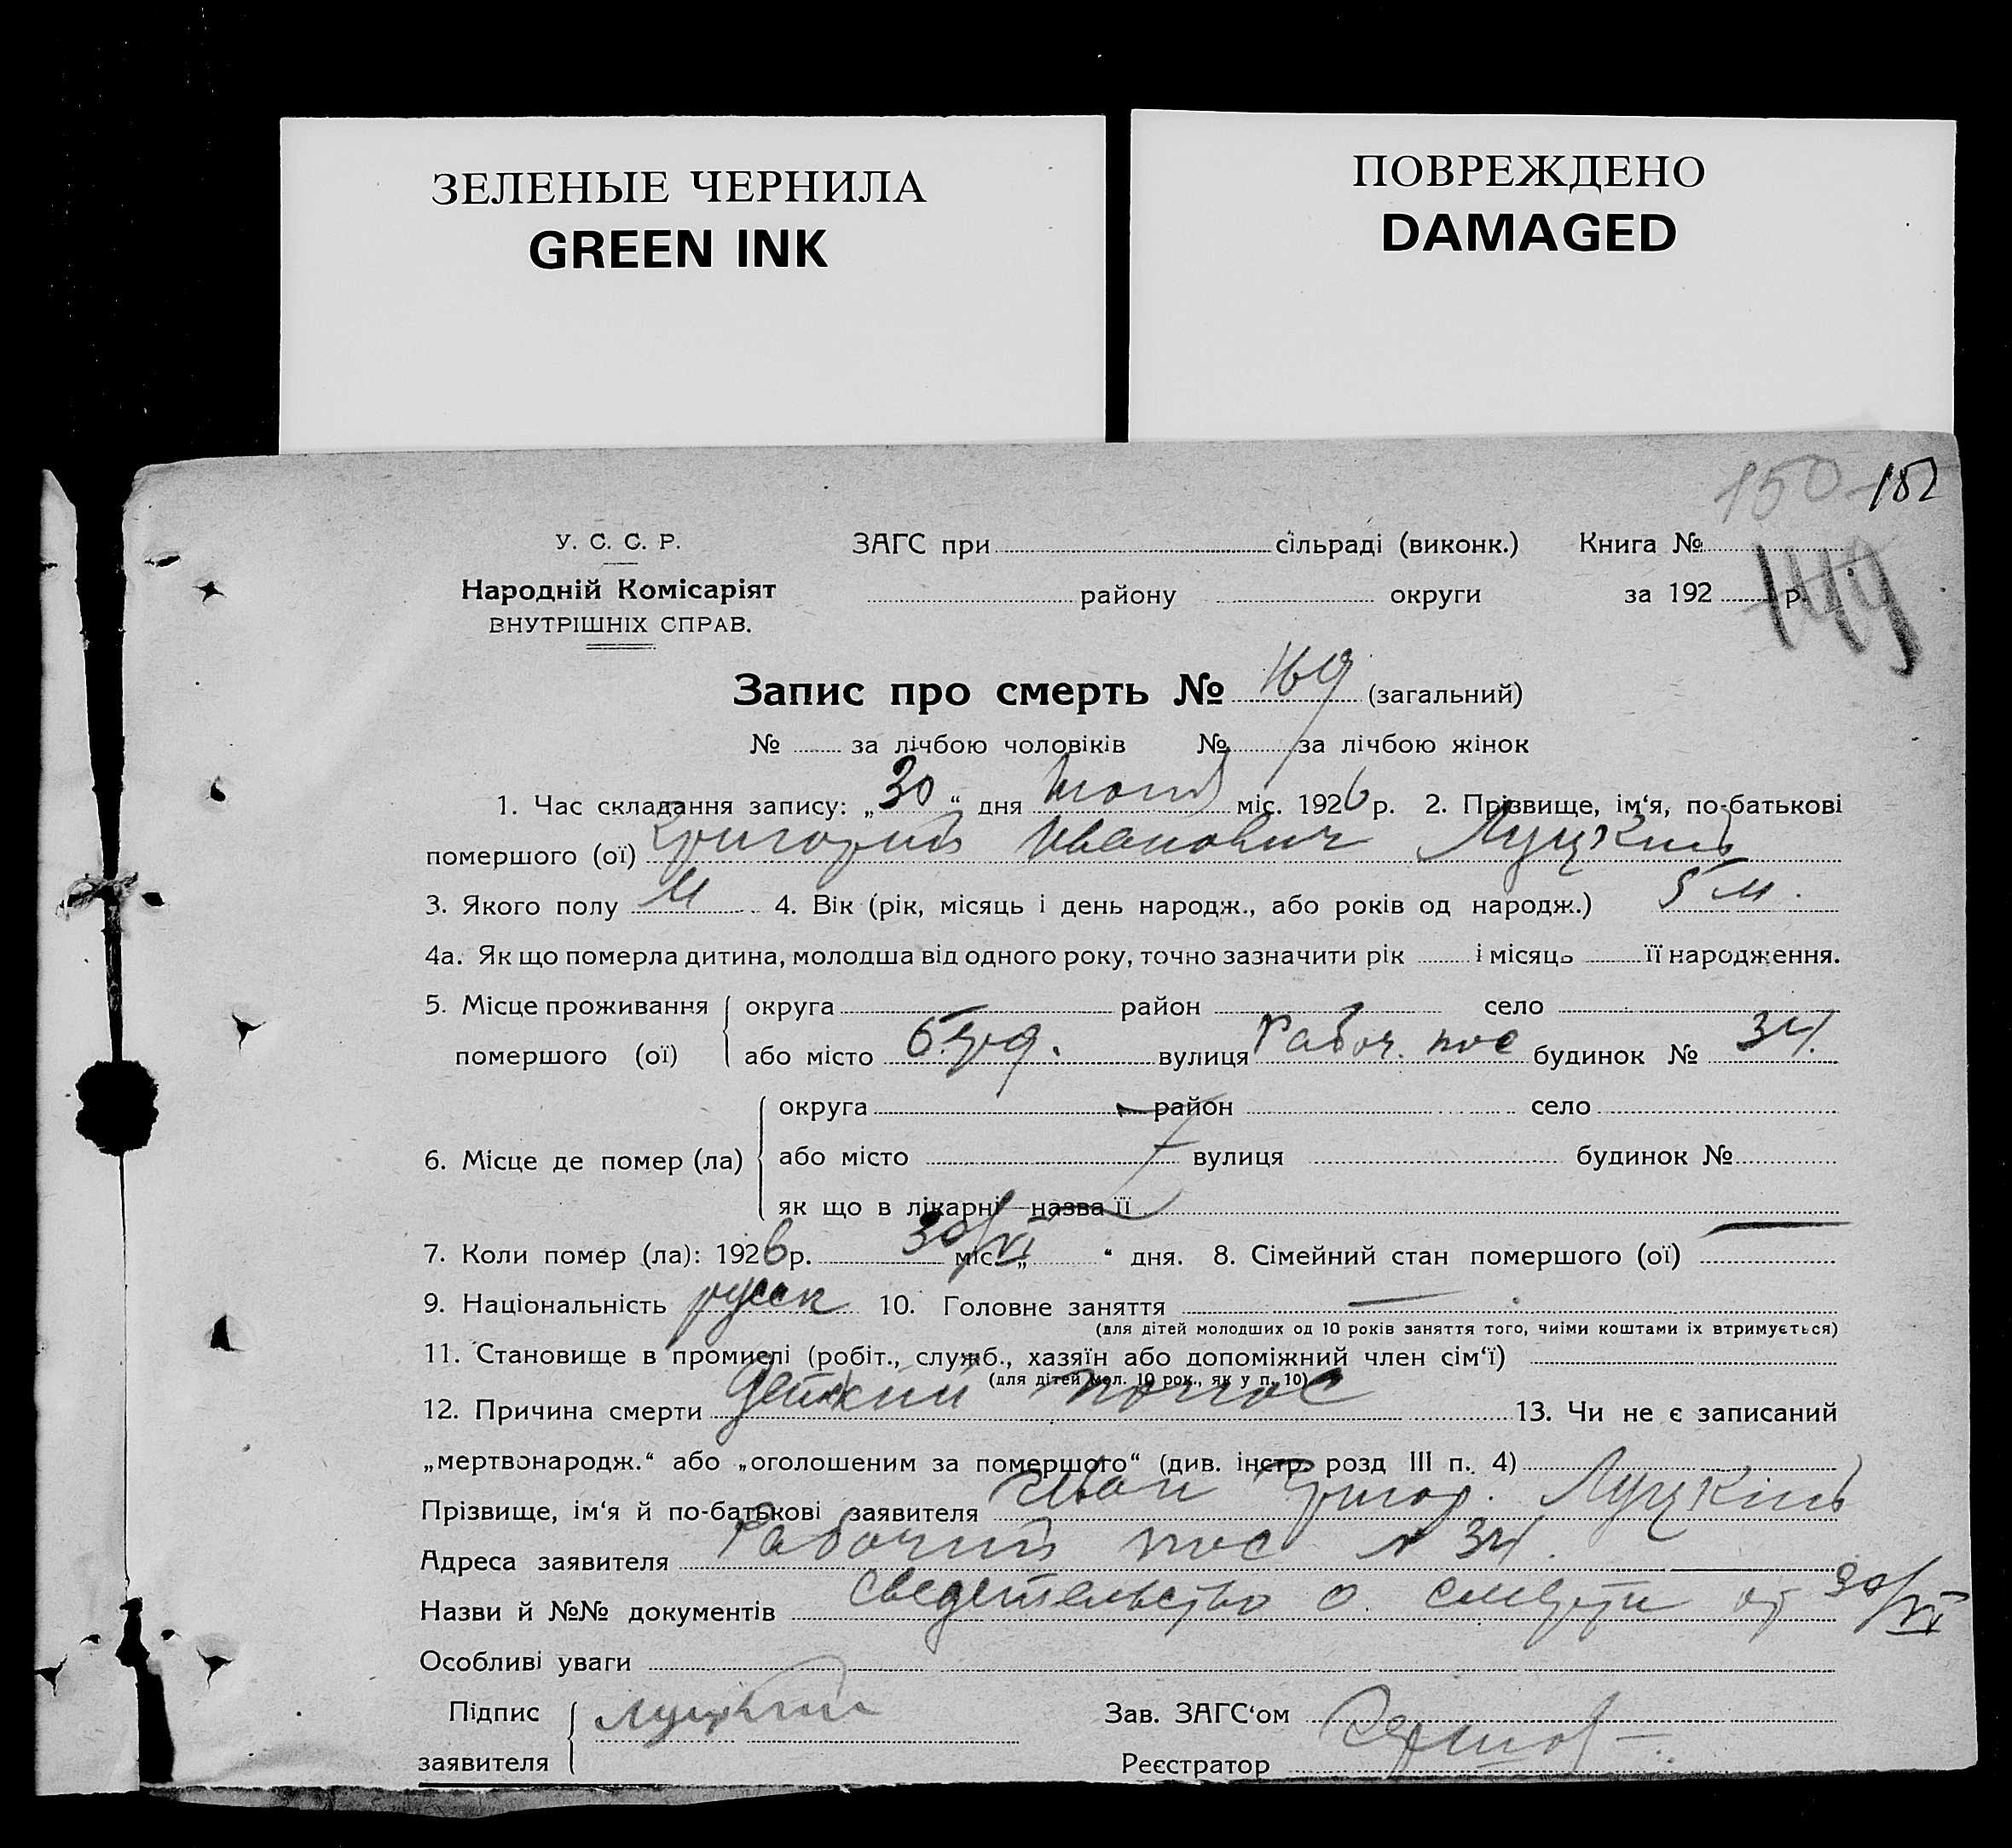 ЗЕЛЕНЫЕ ЧЕРНИЛА
GREEN INK
ПОВРЕЖДЕНО
DAMAGED
150 152
У. С. С. Р. ЗАГС при сільраді (виконк.) Книга №
149
Народній Комісаріят району округи за 192 р.
ВНУТРІШНІХ СПРАВ.
Запис про смерть № 169 (загальний)
№ за лічбою чоловіків № за лічбою жінок
1. Час складання запису: „30“ дня міс. 1926 р. 2. Прізвище, ім‘я, по-батькові
помершого (ої) Григорий Иванович Луцкий
3. Якого полу М 4. Вік (рік, місяць і день народж., або років од народж.) 5 м.
4а. Як що померла дитина, молодша від одного року, точно зазначити рік і місяць її народження.
5. Місце проживання округа район село
помершого (ої) або місто вулиця Рабоч. пос будинок № 34.
округа район село
6. Місце де помер (ла) або місто вулиця будинок №
як що в лікарні назва її
7. Коли помер (ла): 1926 р. 30/VI міс. „ “ дня. 8. Сімейний стан помершого (ої) —
9. Національність русск 10. Головне заняття —
(для дітей молодших од 10 років заняття того, чиїми коштами іх втримується)
11. Становище в промислі (робіт., служб., хазяїн або допоміжний член сім‘ї)
(для дітей мол. 10 рок., як у п. 10)
12. Причина смерти Детский понос 13. Чи не є записаний
„мертвонародж.“ або „оголошеним за помершого“ (див. інстр. розд III п. 4)
Прізвище, ім‘я й по-батькові заявителя Иван Григор. Луцкий
Адреса заявителя Рабочий пос № 34.
Назви й №№ документів Сведетельство о смерти от 30/VI
Особливі уваги
Підпис Луцкий Зав. ЗАГС‘ом
заявителя Реєстратор